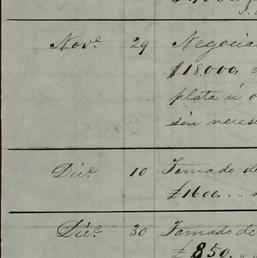 Nov.e 29 Negocia
$18,000,
plata ú o
sin neces
Dic.e 10 Tomado de
£1600. ..
Dic.e 30 Tomado de
£850. ..